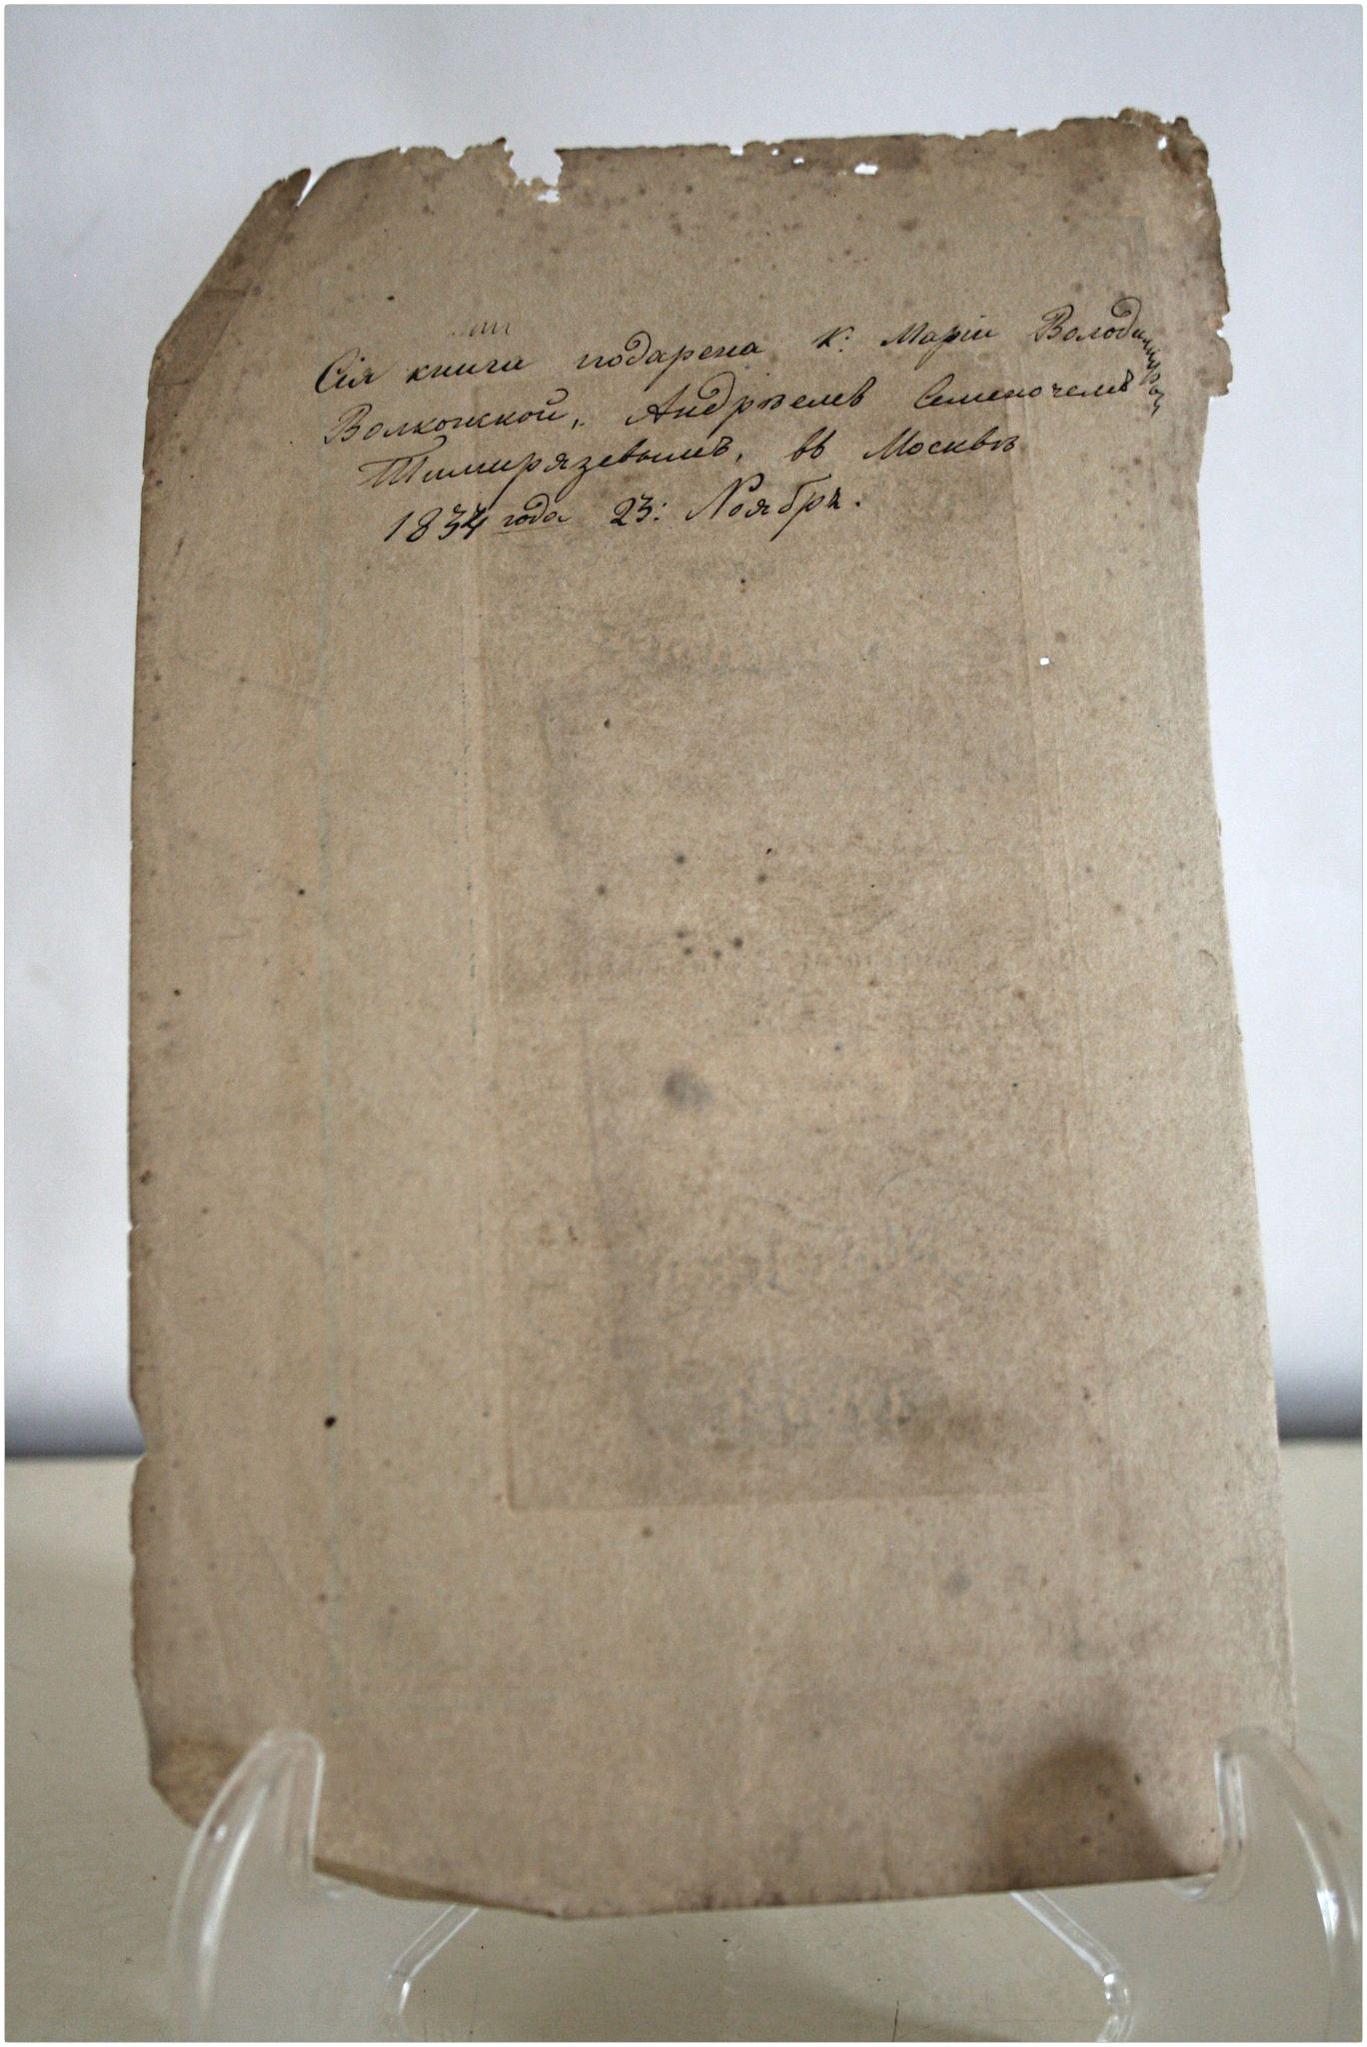 Сія книга подарена К: Маріи Володимировн
Волконской, Андрѣемъ Семеночемъ
Тимирязевымъ, въ Москвѣ
1834 года 23: Ноября.